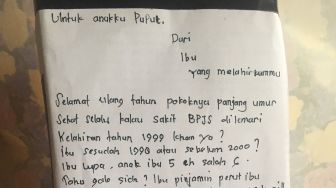 Untuk anakku Puput.
Dari
Ibu
yang melahirkanmu
Selamat ulang tahun pokoknya panjang umur
Sehat selalu kalau sakit BPJS dilemari
Kelahiran tahun 1999 khan yo?
itu sesudah 1998 atau sebelum 2000?
Ibu lupa, anak ibu 5 eh salah 6.
Tahu gak sich? Ibu pinjami perut ibu